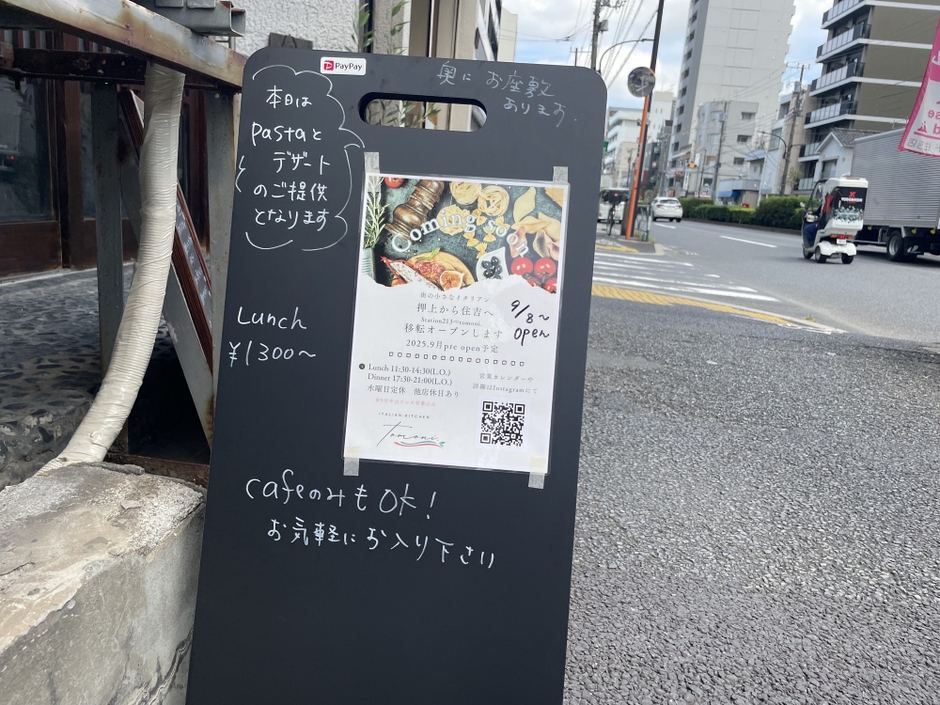 PayPay
奥にお座敷
あります.
本日は
pastaと
デザート
のご提供
となります
Lunch
¥1300~
Coming soon
街の小さなイタリアン
押上から住吉へ
移転オープンします
2025.9月pre open予定
9/8~
open
Lunch 11:30-14:30(L.O.)
Dinner 17:30-21:00(L.O.)
水曜日定休 他店休日あり
営業カレンダーや
詳細はInstagramにて
ITALIAN KITCHEN
Tomoni
cafeのみもOK!
お気軽にお入り下さい